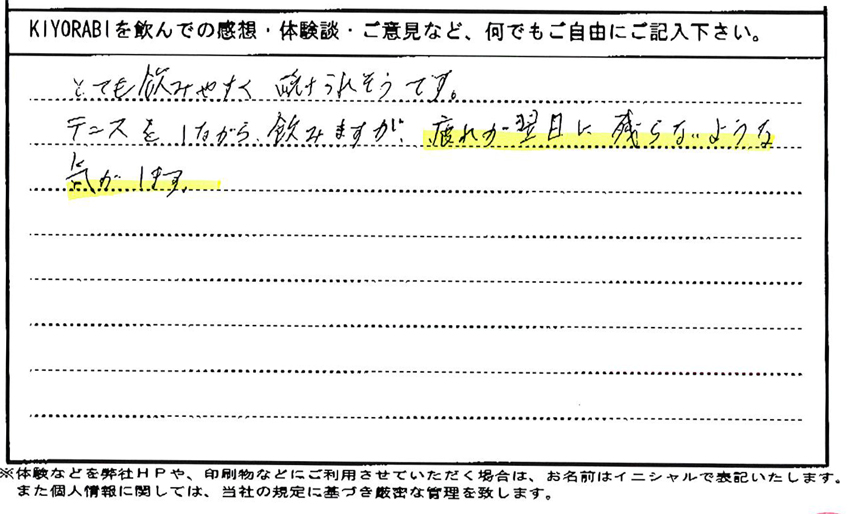 KIYORABIを飲んでの感想・体験談・ご意見など、何でもご自由にご記入下さい。
とても飲みやすく 続けられそうです。
テニスをしながら、飲みますが、疲れが翌日に残らないような
気がします。
※体験などを弊社ＨＰや、印刷物などにご利用させていただく場合は、お名前はイニシャルで表記いたします。
また個人情報に関しては、当社の規定に基づき厳密な管理を致します。